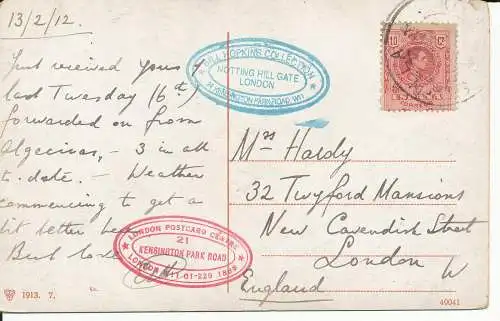 13/2/12.
Just received yours
last Tuesday (6th)
forwarded on from
Algeciras, - 3 in all
to-date. - Weather
commencing to get a
bit better here
Best love
BILL HOPKINS COLLECTION
NOTTING HILL GATE
LONDON
LONDON POSTCARD CENTRE
21
KENSINGTON PARK ROAD
LONDON W11-01-229 1888
15 CS. 10
Mrs Hardy
32 Twyford Mansions
New Cavendish Street
London W
England
1913. 7.
49041